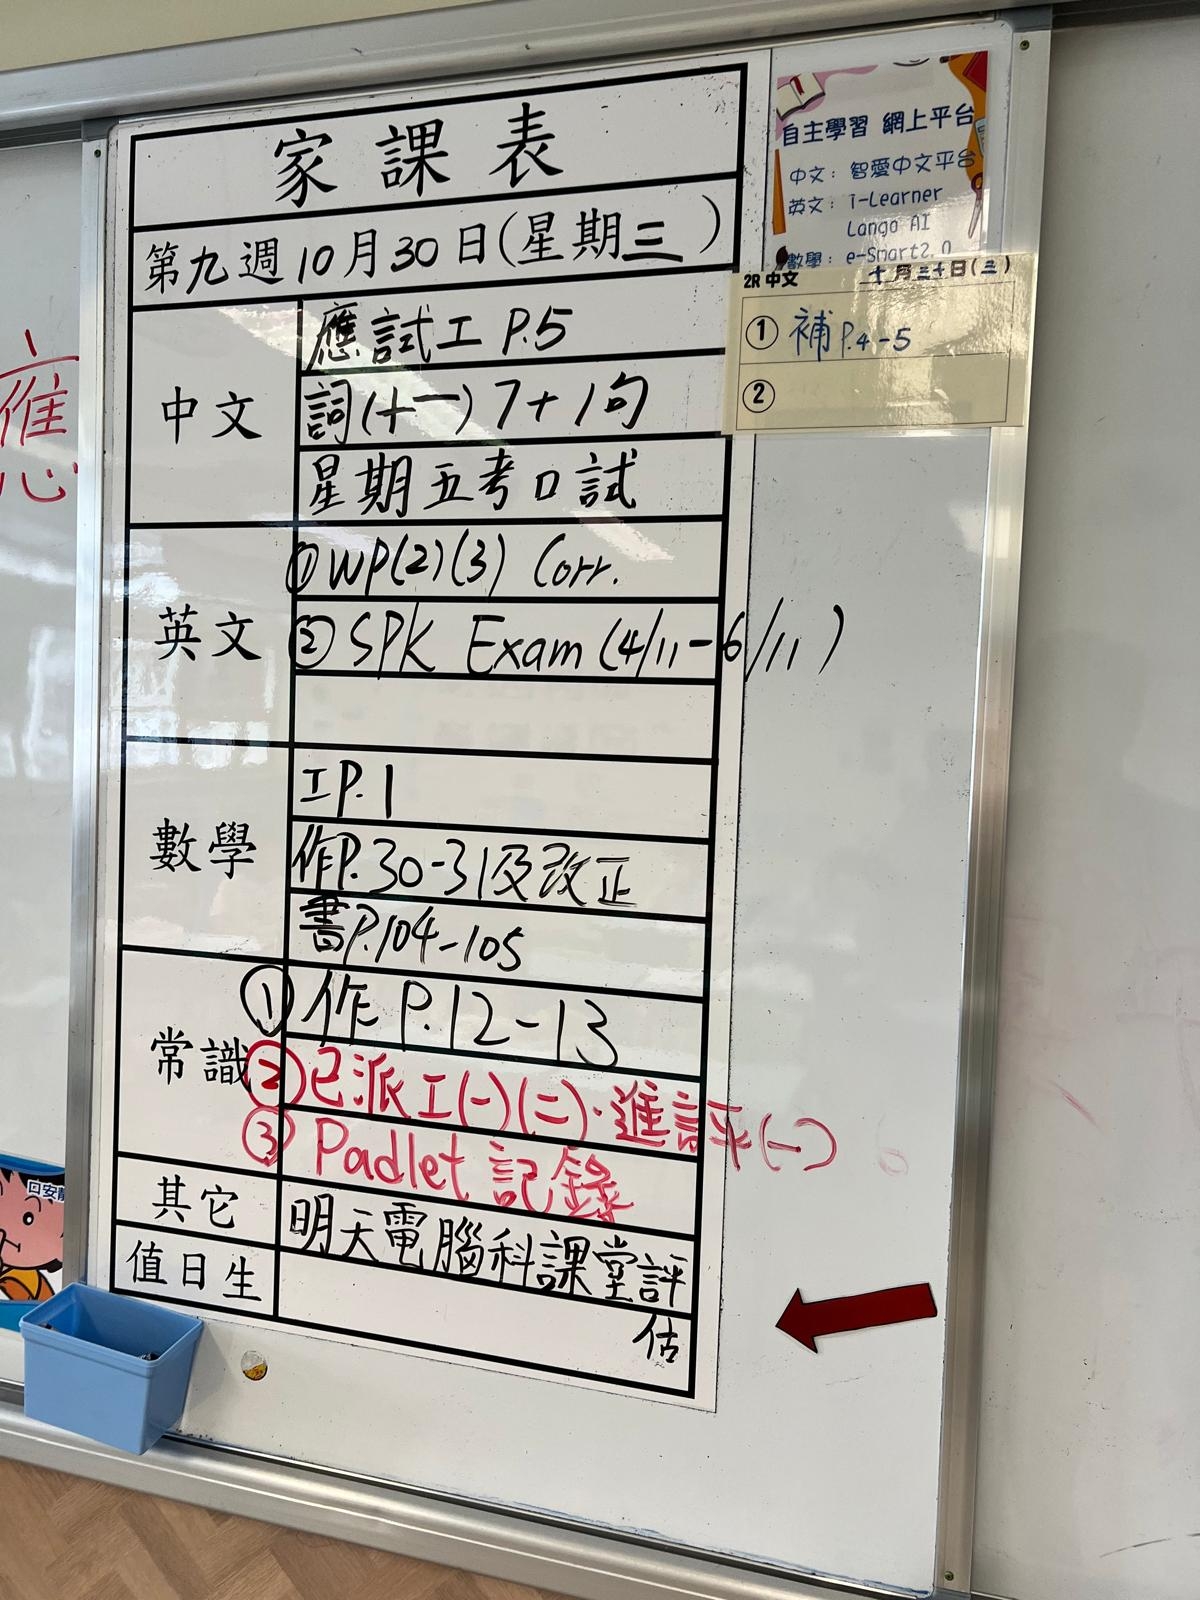 家課表
第九週10月30日(星期三)
中文
應試工 P.5
詞(十一) 7+1句
星期五考口試
英文
① WP(2)(3) Corr.
② SPK Exam (4/11-6/11)
數學
工P.1
作P.30-31及改正
書P.104-105
常識
① 作 P.12-13
② 已派工(一)(二)、進評(一)
③ Padlet 記錄
其它
明天電腦科課堂評
估
值日生
自主學習 網上平台
中文: 智愛中文平台
英文: i-Learner
Lango AI
數學: e-Smart2.0
2R 中文 十月三十日(三)
① 補P.4-5
②
應
口安靜